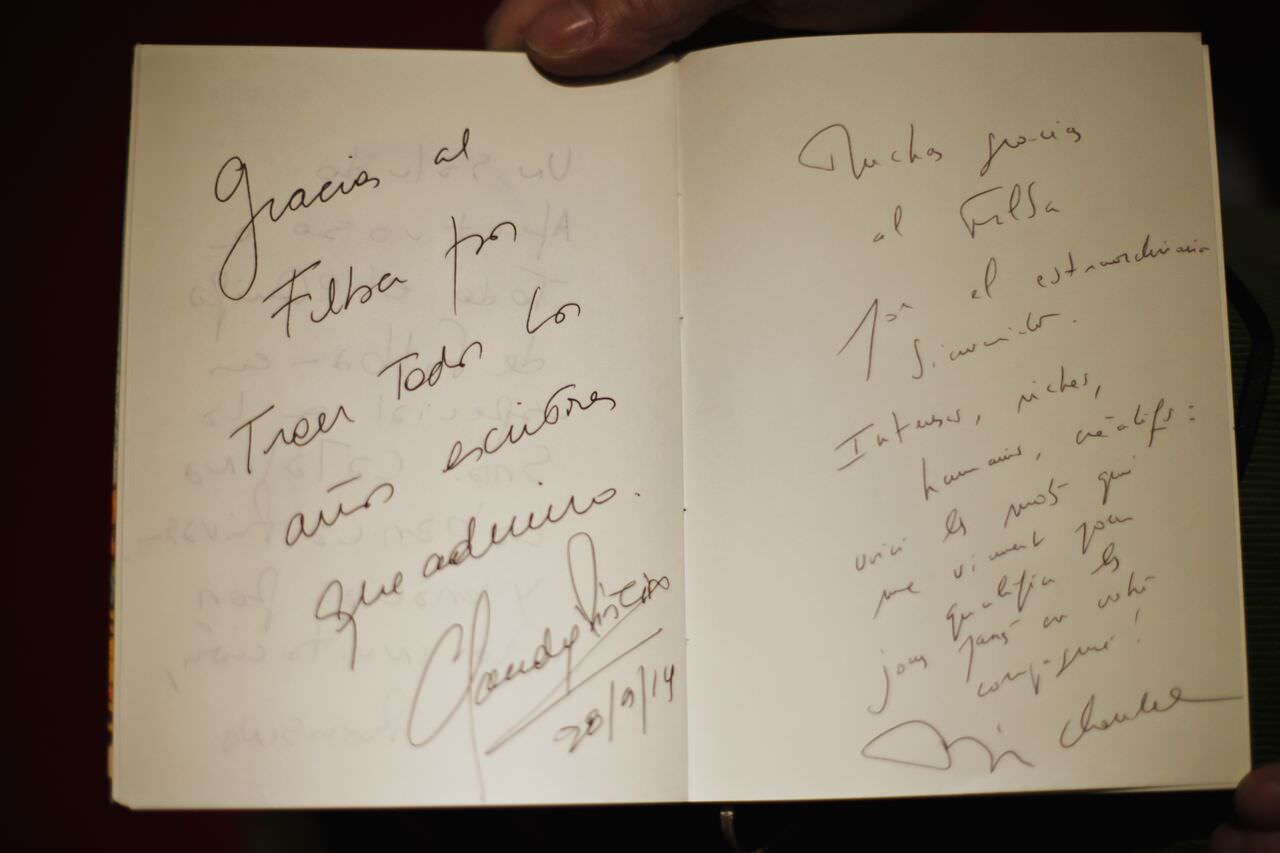 Gracias al
Filba por
Traer Todos los
años escritores
que admiro.
Claudia Piñeiro
28/9/14
Muchas gracias
al Filba
por el extraordinario
Intenses, riches,
humains, créatifs :
voici les mots qui
me viennent pour
qualifier les
jours passés en votre
compagnie !